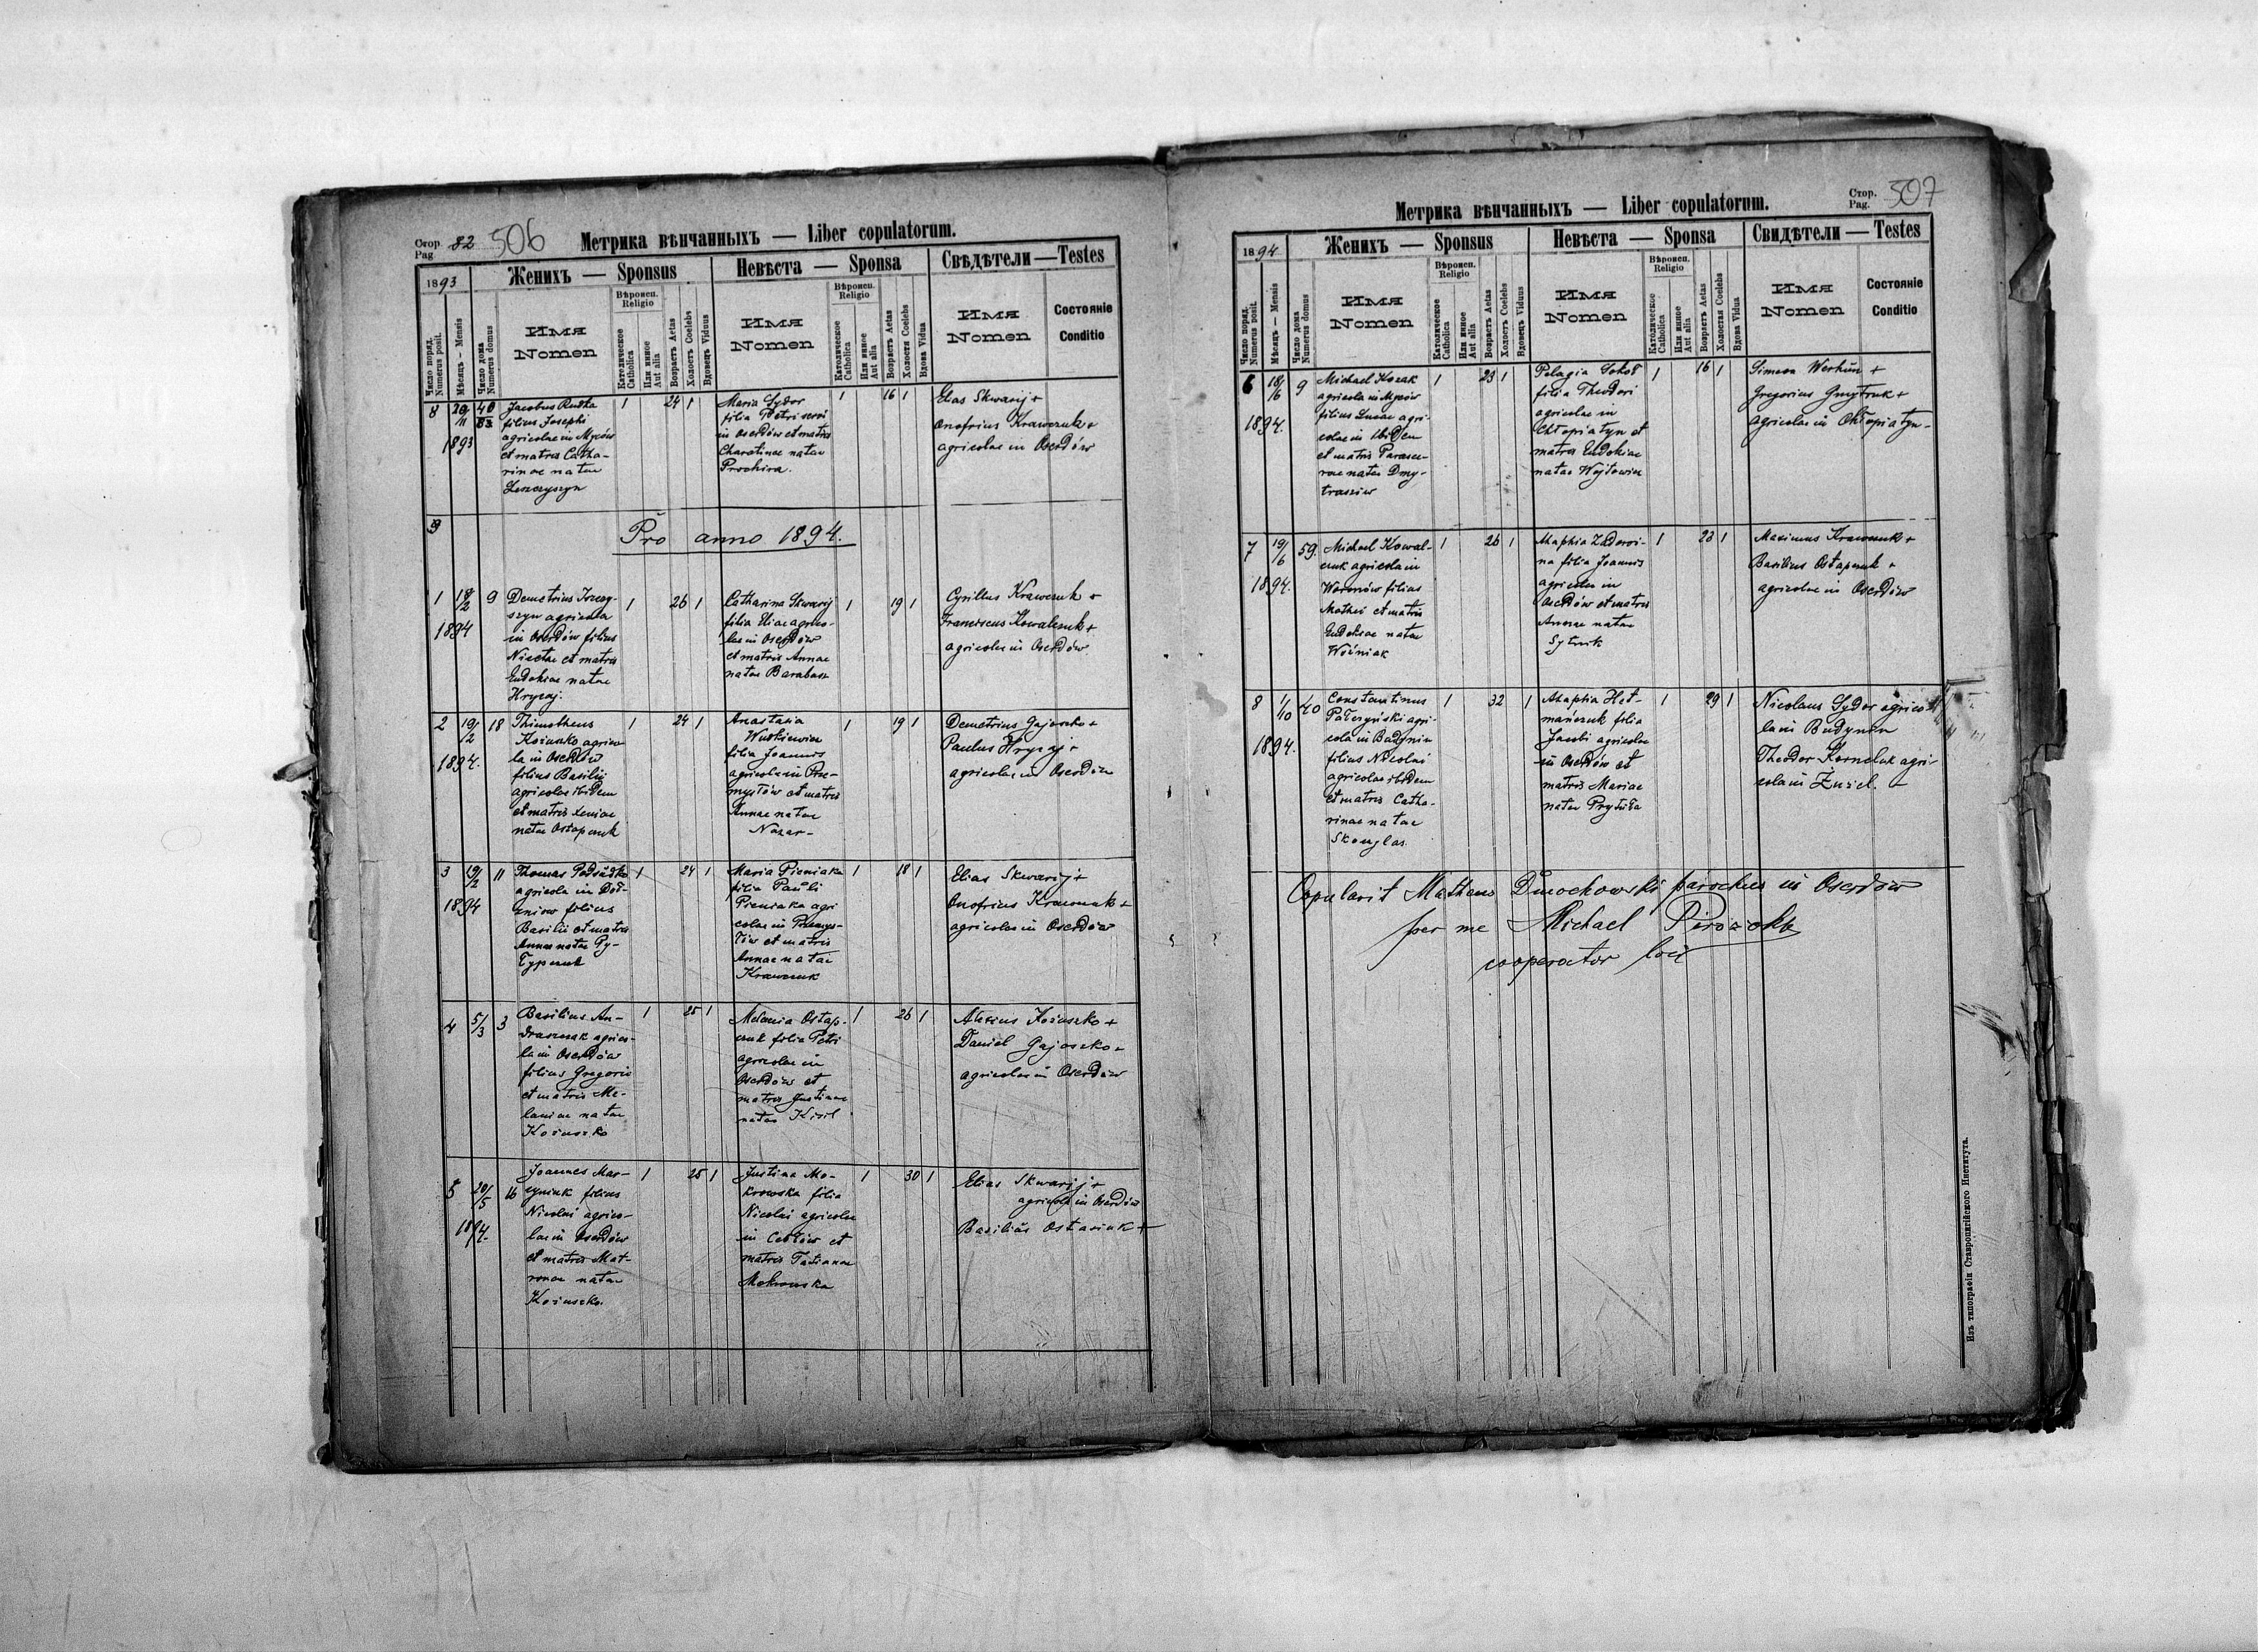 Стор. 82 506 Метрика вѣнчанныхъ — Liber copulatorum.
Pag
1893 Женихъ — Sponsus Невѣста — Sponsa Свѣдѣтели — Testes
Число поряд. Numerus posit.
Мѣсяцъ — Mensis
Число дома Numerus domus
Имя Nomen
Вѣроисп. Religio
Католическое Catholica
Или инное Aut alia
Возрастъ Aetas
Холостъ Coelebs
Вдовецъ Viduus
Имя Nomen
Вѣроисп. Religio
Католическое Catholica
Или инное Aut alia
Возрастъ Aetas
Холоста Coelebs
Вдова Vidua
Имя Nomen
Состояніе Conditio
8 20/11 1893 40
Jacobus Rudka
filius Josephi
agricolae in Myców
et matris Catha-
rinae natae
1 24 1
Maria Sydor
filia Petri servi
in Oserdów et matris
natae
Prochira.
1 16 1
Elias Skwarij +
Onofrius Krawczuk +
agricolae in Oserdów
9
Pro anno 1894.
1 18/2 1894 9
Demetrius
agricola
in Oserdów filius
Nicetae et matris
Eudokiae natae
Hrycaj.
1 26 1
Catharina Skwarij
filia Eliae agrico-
lae in Oserdów
et matris Annae
natae Barabasz
1 19 1
Cyrillus Krawczuk +
Franciscus Kowalczuk +
agricolae in Oserdów
2 19/2 1894. 18
Thimotheus
Kożuszko agrico-
la in Oserdów
filius Basilii
agricolae ibidem
et matris Xeniae
natae Ostapczuk
1 24 1
Anastasia
filia Joannis
agricolae in Prze-
mysłów et matris
Annae natae
Nazar-
1 19 1
Demetrius Gajoszko +
Paulus Hrycaj +
agricolae in Oserdów
3 19/2 1894 11
Thomas
agricola in Doł-
żniow filius
Basilii et matris
Annae natae Py-
łypczuk
1 24 1
Maria Pieniaka
filia Pauli
Pieniaka agri
colae in Przemys-
łów et matris
Annae natae
Krawczuk
1 18 1
Elias Skwarij +
Onofrius Krawczuk +
agricolae in Oserdów
4 5/3 3
Basilius An-
draszczak agrico-
la in Oserdów
filius Gregorii
et matris Me-
laniae natae
Kożuszko
1 25 1
Melania Ostap-
czuk filia Petri
agricolae in
Oserdów et
matris Justinae
natae Kisil
1 26 1
Alexius Kożuszko +
Daniel Gajoszko +
agricolae in Oserdów
5 20/5 1894. 16
Joannes Mar-
cyniuk filius
Nicolai agrico-
lae in Oserdów
et matris Mat-
ronae natae
Kożuszko.
1 25 1
Justina Mo-
krowska filia
Nicolai agricolae
in Cebłów et
matris Tatianae
Mokrowska
1 30 1
Elias Skwarij +
agricola in Oserdów
Basilius Ostasiuk +
Метрика вѣнчанныхъ — Liber copulatorum. Стор. 507
Pag.
1894 Женихъ — Sponsus Невѣста — Sponsa Свидѣтели — Testes
Число поряд. Numerus posit.
Мѣсяцъ — Mensis
Число дома Numerus domus
Имя Nomen
Вѣроисп. Religio
Католическое Catholica
Или инное Aut alia
Возрастъ Aetas
Холостъ Coelebs
Вдовецъ Viduus
Имя Nomen
Вѣроисп. Religio
Католическое Catholica
Или инное Aut alia
Возрастъ Aetas
Холостая Coelebs
Вдова Vidua
Имя Nomen
Состояніе Conditio
6 18/6 1894. 9
Michael Kozak
agricola in Myców
filius Lucae agri-
colae in ibidem
et matris Parasce-
vae natae Dmy-
trasziw
1 23 1
Pelagia Sokoł
filia Theodori
agricolae in
Chłopiatyn et
matris Eudokiae
natae Wojtowicz
1 16 1
Simeon Werhun +
Gregorius Gmytruk +
agricolae in Chłopiatyn-
7 19/6 1894. 59.
Michael Kowal-
czuk agricola in
Woronów filius
Mathei et matris
Eudokiae natae
Woźniak
1 26 1
Ahaphia Zadoroż-
na filia Joannis
agricolae in
Oserdów et matris
Annae natae
Sytnik
1 23 1
Maximus Krawczuk +
Basilius Ostapczuk +
agricolae in Oserdów
8 1/10 1894. 40
Constantinus
Pałczyński agri-
cola in Budynin
filius Nicolai
agricolae ibidem
et matris Catha-
rinae natae
Skonglas.
1 32 1
Ahaphia Het-
mańczuk filia
Jacobi agricolae
in Oserdów et
matris Mariae
natae Prytuła
1 29 1
Nicolaus Sydor agrico-
la in Budynin
Theodor Korneluk agri-
cola in Żużel.
Copulavit Matheus Dmochowski parochus in Oserdów
per me Michael Pirożok
cooperator loci
Изъ типографіи Ставропигійского Института.